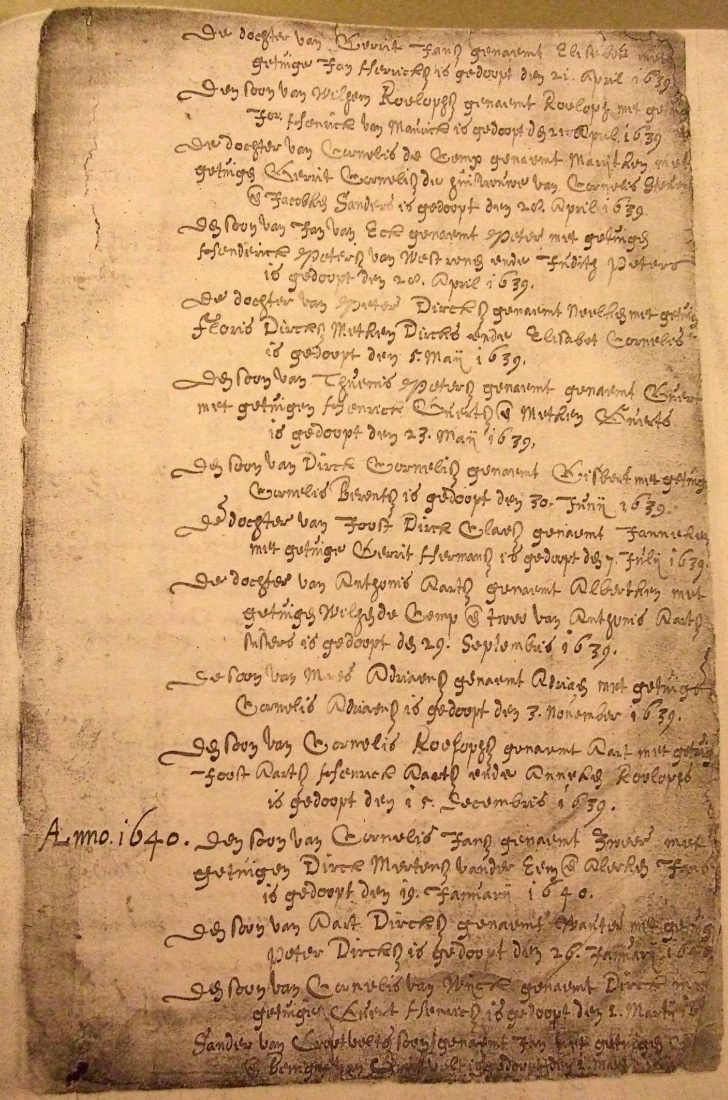 De dochter van Gerrit Jansz genaemt Elisabet met
getuige Jan Henricksz is gedoopt den 21. April 1639
Den soon van Wilhem Roelophsz genaemt Roeloph met
Henrick van Maurick is gedoopt den 21. April 1639
De dochter van Cornelis de Cemp genaemt Marijtken met
getuigen Gerrit Cornelisz die huisvrouwe van Cornelis
Jacobken Sanders is gedoopt den 28. April 1639.
Den soon van Jan van Eck genaemt Peter met getuigen
Henderick Petersz van Westrenen ende Judith Peters
is gedoopt den 28. April 1639.
De dochter van Peter Dircksz genaemt Neelken met
Floris Dircksz Metken Dircks ende Elisabet Cornelis
is gedoopt den 5. Maij 1639.
Den soon van Thuenis Petersz genaemt genaemt Evert
met getuigen Henrick Evertsz Metken Everts
is gedoopt den 23. Maij 1639.
Den soon van Dirck Cornelisz genaemt Gisbert met
Cornelis Berentsz is gedoopt den 30. Junij 1639.
De dochter van Joost Dirck Claesz genaemt Janneken
met getuige Gerrit Hermansz is gedoopt den 7. Julij 1639.
De dochter van Anthonis Aartsz genaemt Albertken met
getuigen Wilhem de Cemp twee van Anthonis Aartsz
susters is gedoopt den 29. Septembris 1639.
De soon van Maes Adriaensz genaemt Adriaen met getuige
Cornelis Adriaensz is gedoopt den 3. November 1639.
Den soon van Cornelis Roelophsz genaemt Aart met
Joost Aartsz Henrick Aartsz ende Anneken Roelophs
is gedoopt den 15. Decembris 1639.
Anno. 1640. Den soon van Cornelis Jansz genaemt Zweer met
getuigen Dirck Mertensz vander Eem Alerken Jans
is gedoopt den 19. Januarij 1640.
Den soon van Aart Dircksz genaemt Wauter met
Peter Dircksz is gedoopt den 26. Januarij 1640
Den soon van Cornelis van Wijck genaemt Dirck met
getuigen Evert Henricksz is gedoopt den 1. Martij
Sander van Grootvelts soon genaemt Jan met getuigen
van is gedoopt den